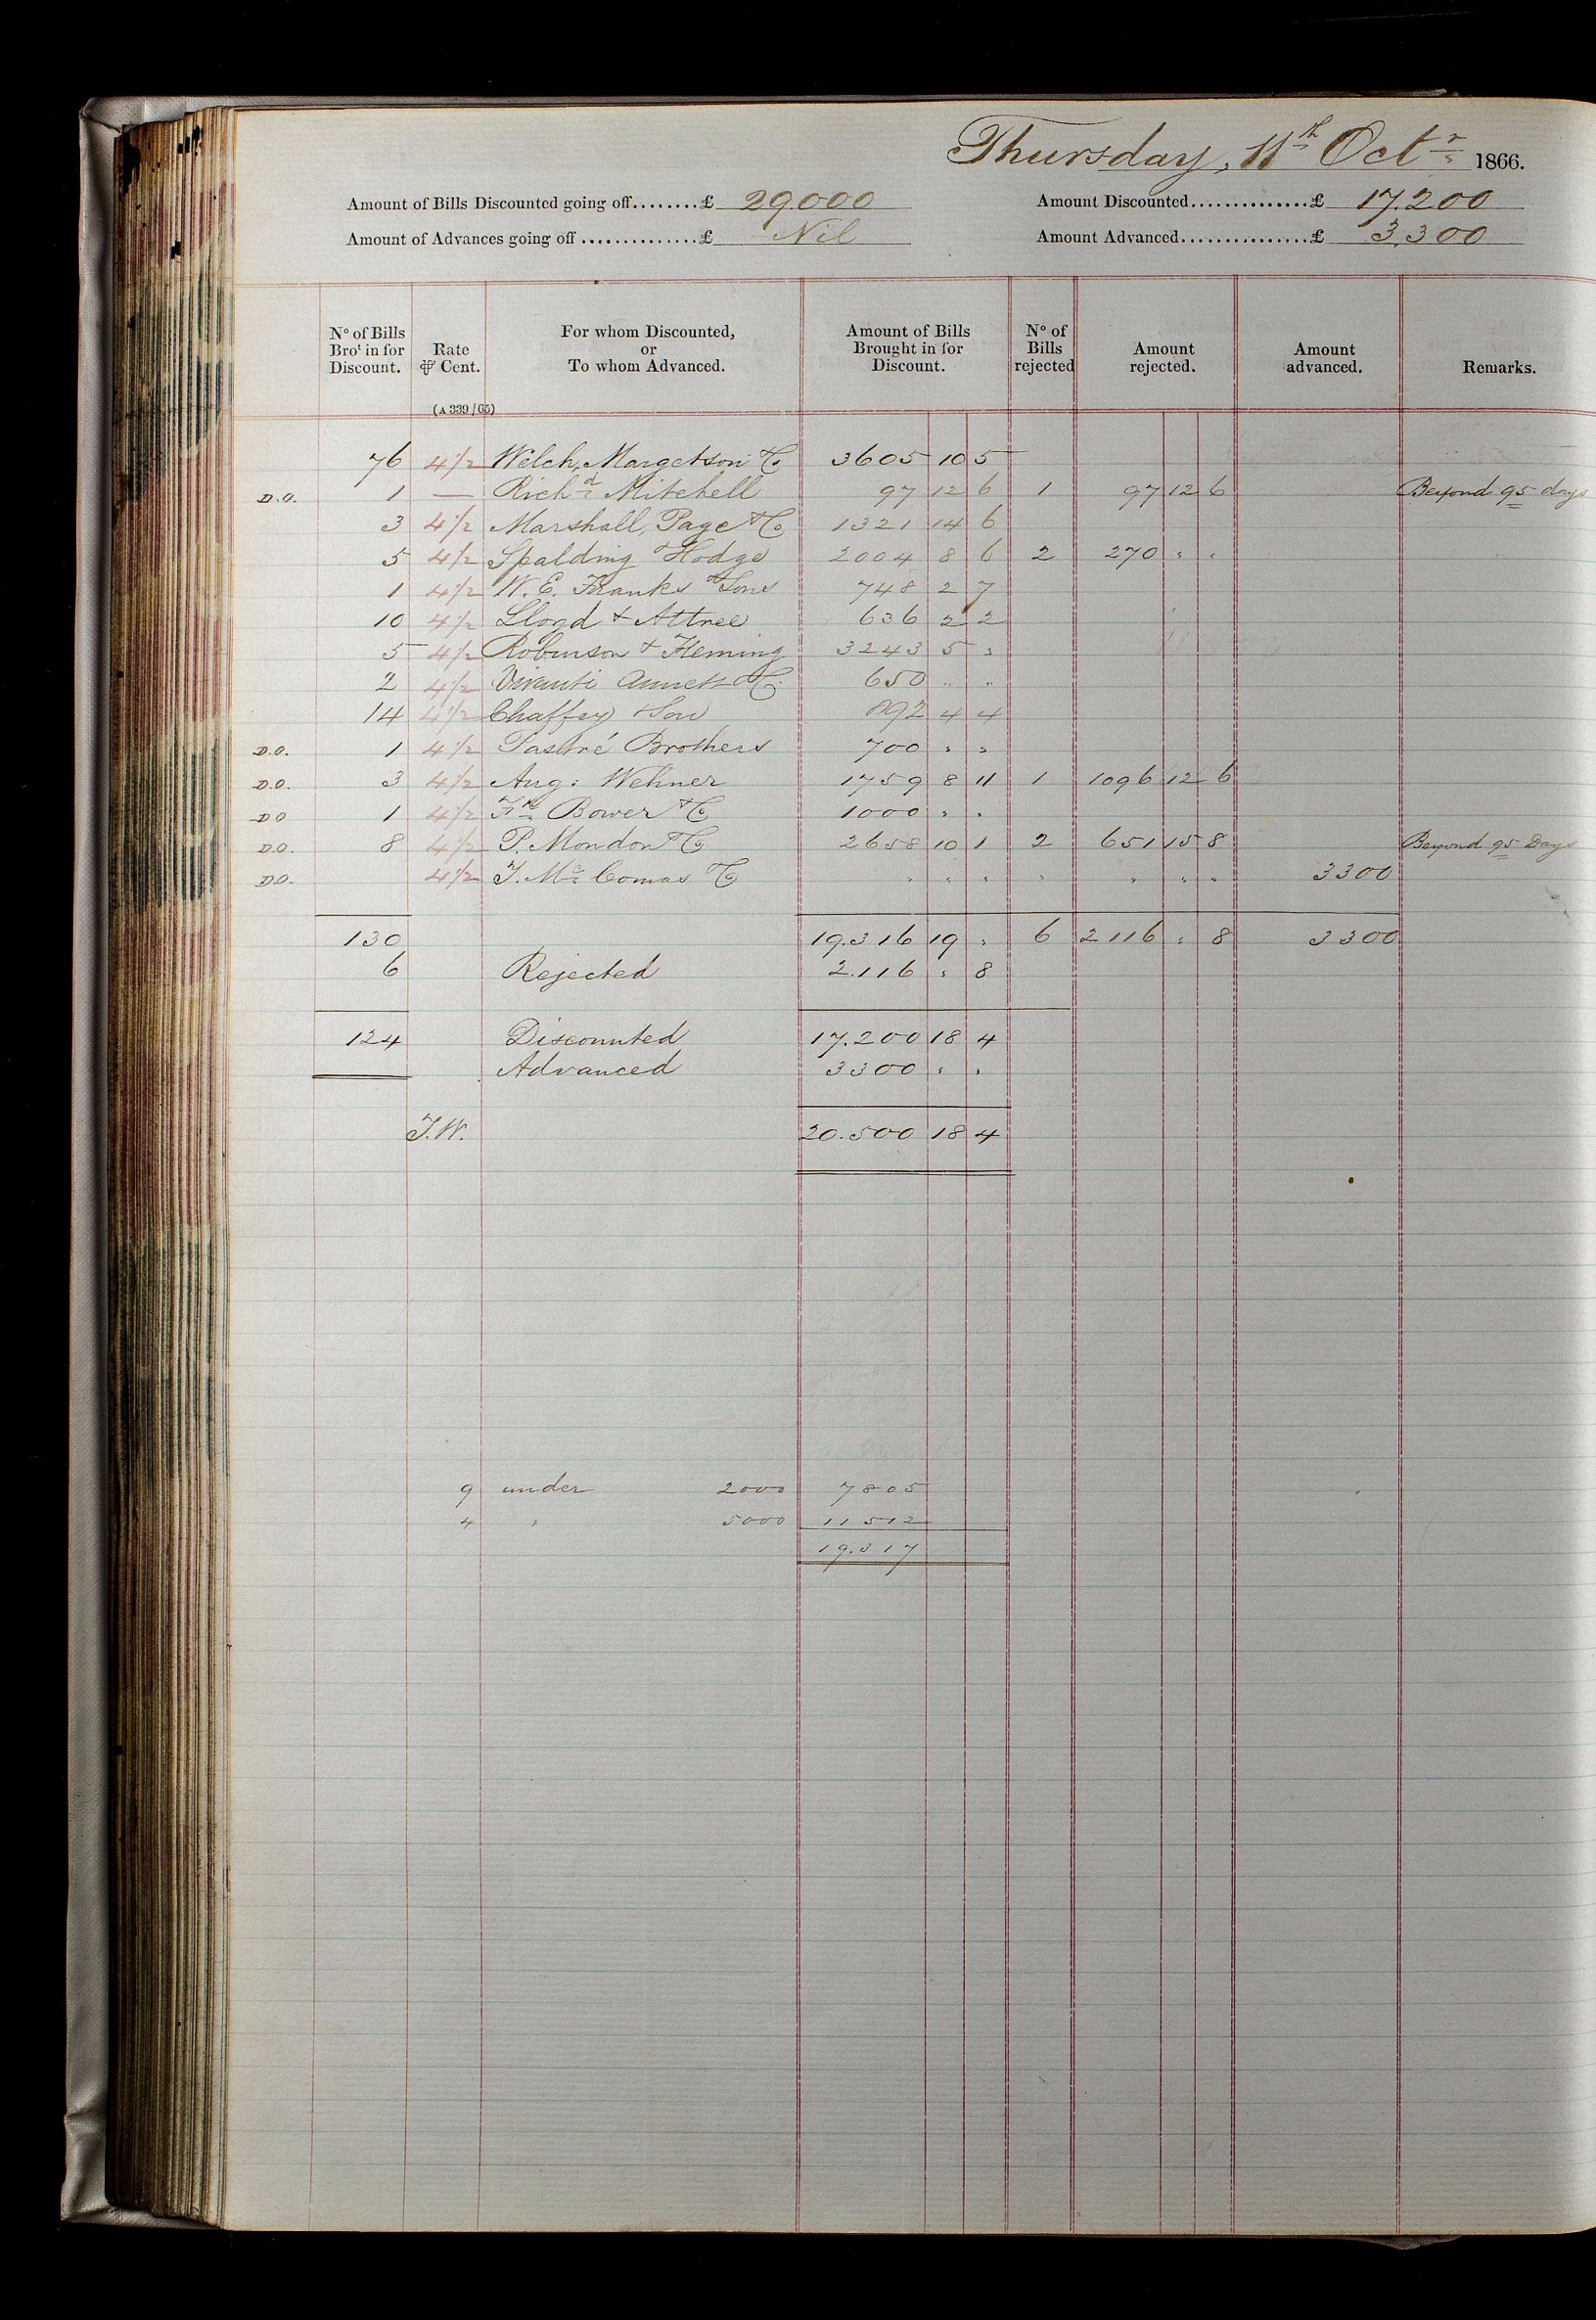 Thursday, 11th Octr 1866.
Amount of Bills Discounted going off........£ 29.000 Amount Discounted..............£ 17.200
Amount of Advances going off..............£ Nil Amount Advanced...............£ 3.300
No of Bills Brot in for Discount.
Rate ⅌ Cent.
(A 339/65)
For whom Discounted, or To whom Advanced.
Amount of Bills Brought in for Discount.
No of Bills rejected
Amount rejected.
Amount advanced.
Remarks.
76 4½ Welch, Margetson & Co 3605 10 5
D.O. 1 — Richd Mitchell 97 12 6 1 97 12 6 Beyond 95 days
3 4½ Marshall, Page & Co 1321 14 6
5 4½ Spalding & Hodge 2004 8 6 2 270 " "
1 4½ W. E. Franks & Sons 748 2 7
10 4½ Lloyd & Attree 636 2 2
5 4½ Robinson & Fleming 3243 5 "
2 4½ Vivanti Annett & Co 650 " "
14 4½ Chaffey & Son 892 4 4
D.O. 1 4½ Pastré Brothers 700 " "
D.O. 3 4½ Aug: Wehner 1759 8 11 1 1096 12 6
D.O 1 4½ Fk Bower & Co 1000 " "
D.O. 8 4½ P. Mondon & Co 2658 10 1 2 651 15 8 Beyond 95 Days
D.O. 4½ J. Mc Comas & Co " " " " " " " 3300
130 19.316 19 " 6 2116 " 8 3300
6 Rejected 2.116 " 8
124 Discounted 17.200 18 4
Advanced 3300 " "
J.W. 20.500 18 4
9 under 2000 7805
4 " 5000 11512
19.317